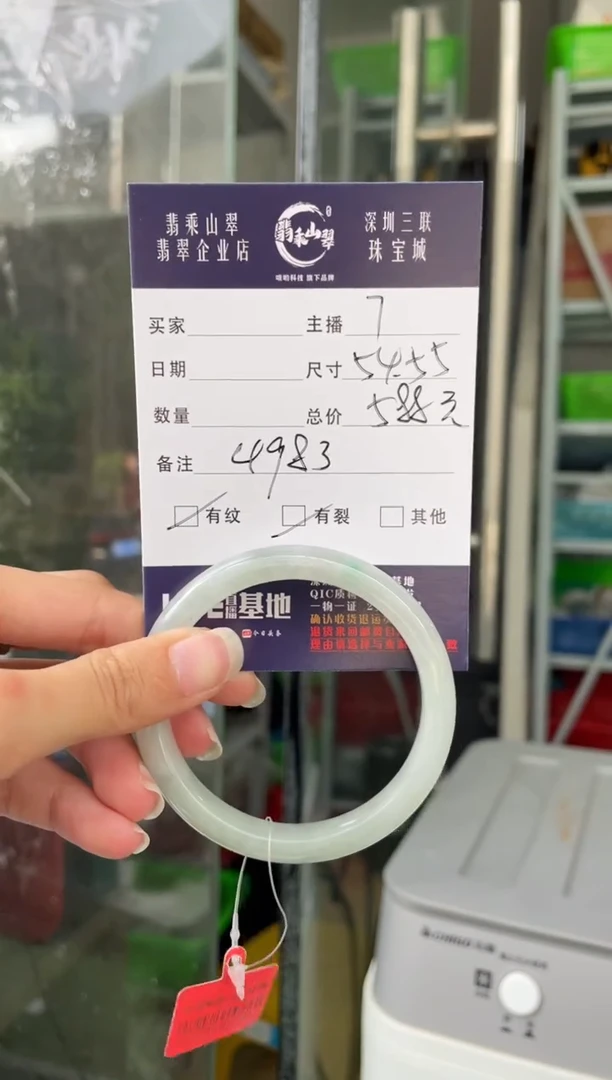 翡乘山翠
翡翠企业店
翡乘山翠
深圳三联
珠宝城
旗下品牌
买家
主播 7
日期
尺寸 54.55
数量
总价 588元
备注 4983
有纹
有裂
其他
直播基地
今日头条
基地
QIC质
一物一证
确认收货退运